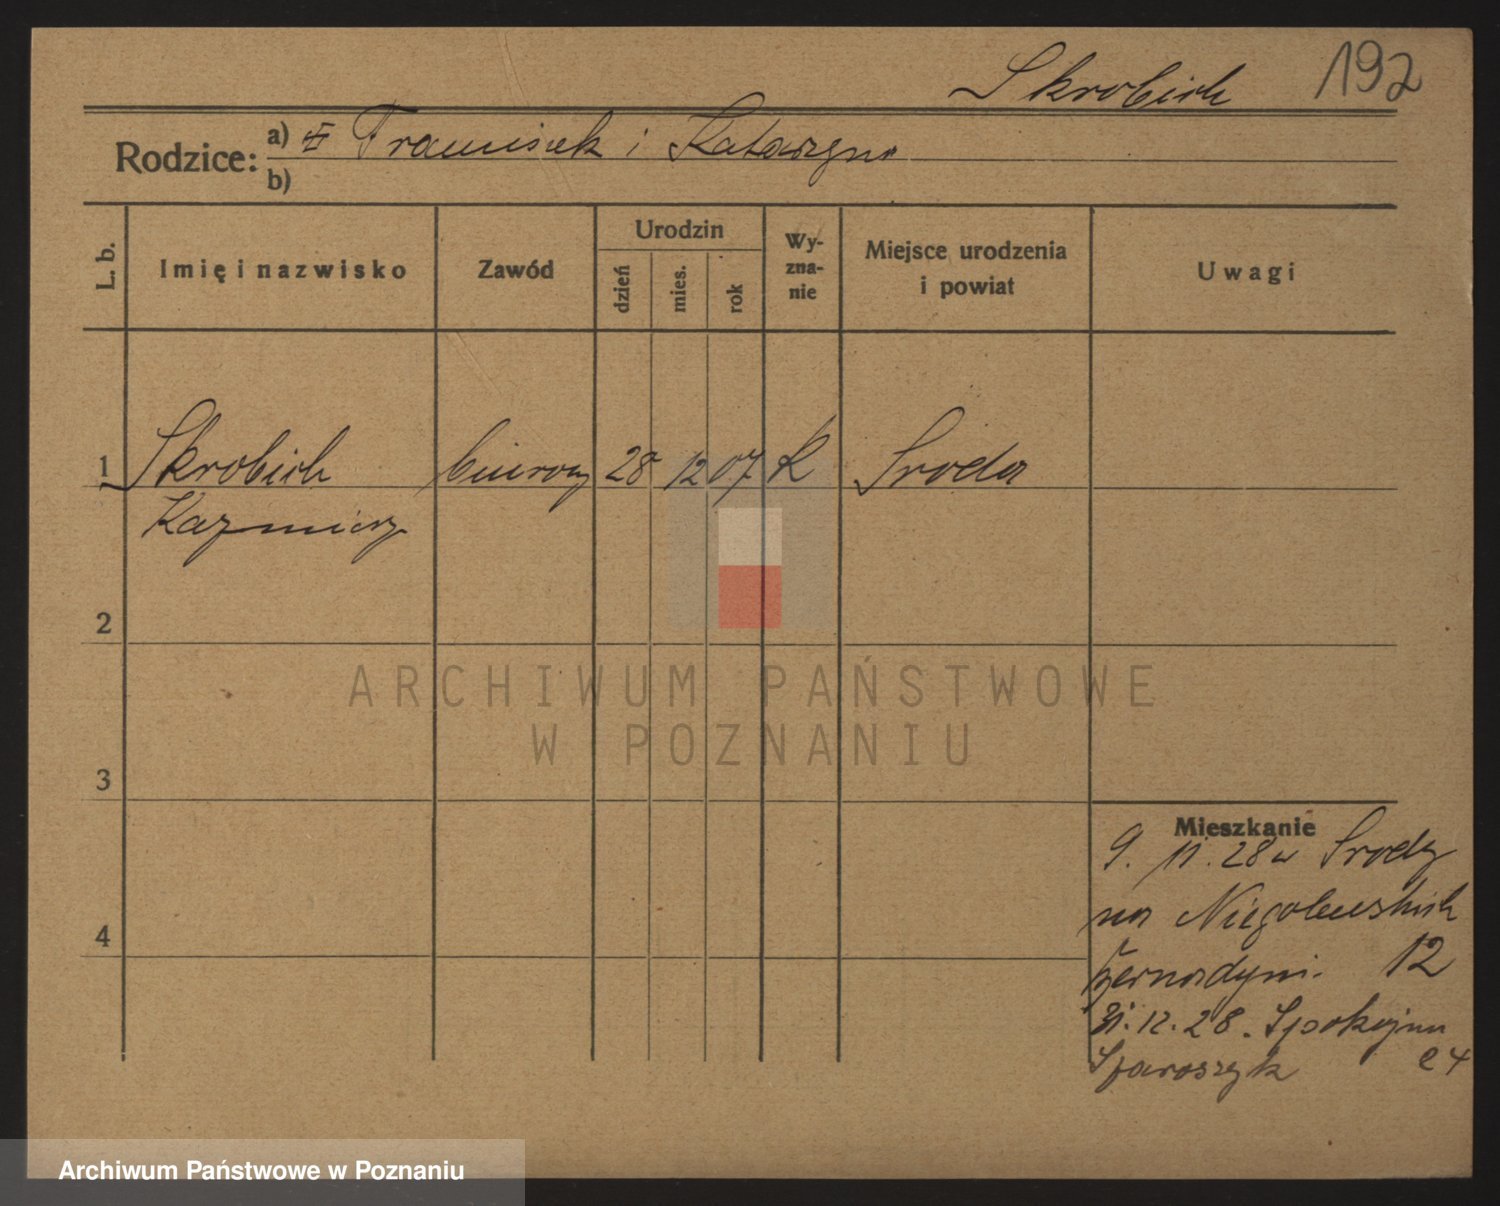 Skrobich 192
Rodzice: a) Franciszek i Katarzyna
b)
L. b. Imię i nazwisko Zawód Urodzin dzień mies. rok Wyzna-nie Miejsce urodzenia i powiat Uwagi
1 Skrobich biurowy 28 12 07 K Środa
Kazmierz
2
3
4
Mieszkanie
9. 11. 28 w Środy
na Niegolewskich
12
31. 12. 28. Spokojna
ARCHIWUM PAŃSTWOWE
W POZNANIU
Archiwum Państwowe w Poznaniu